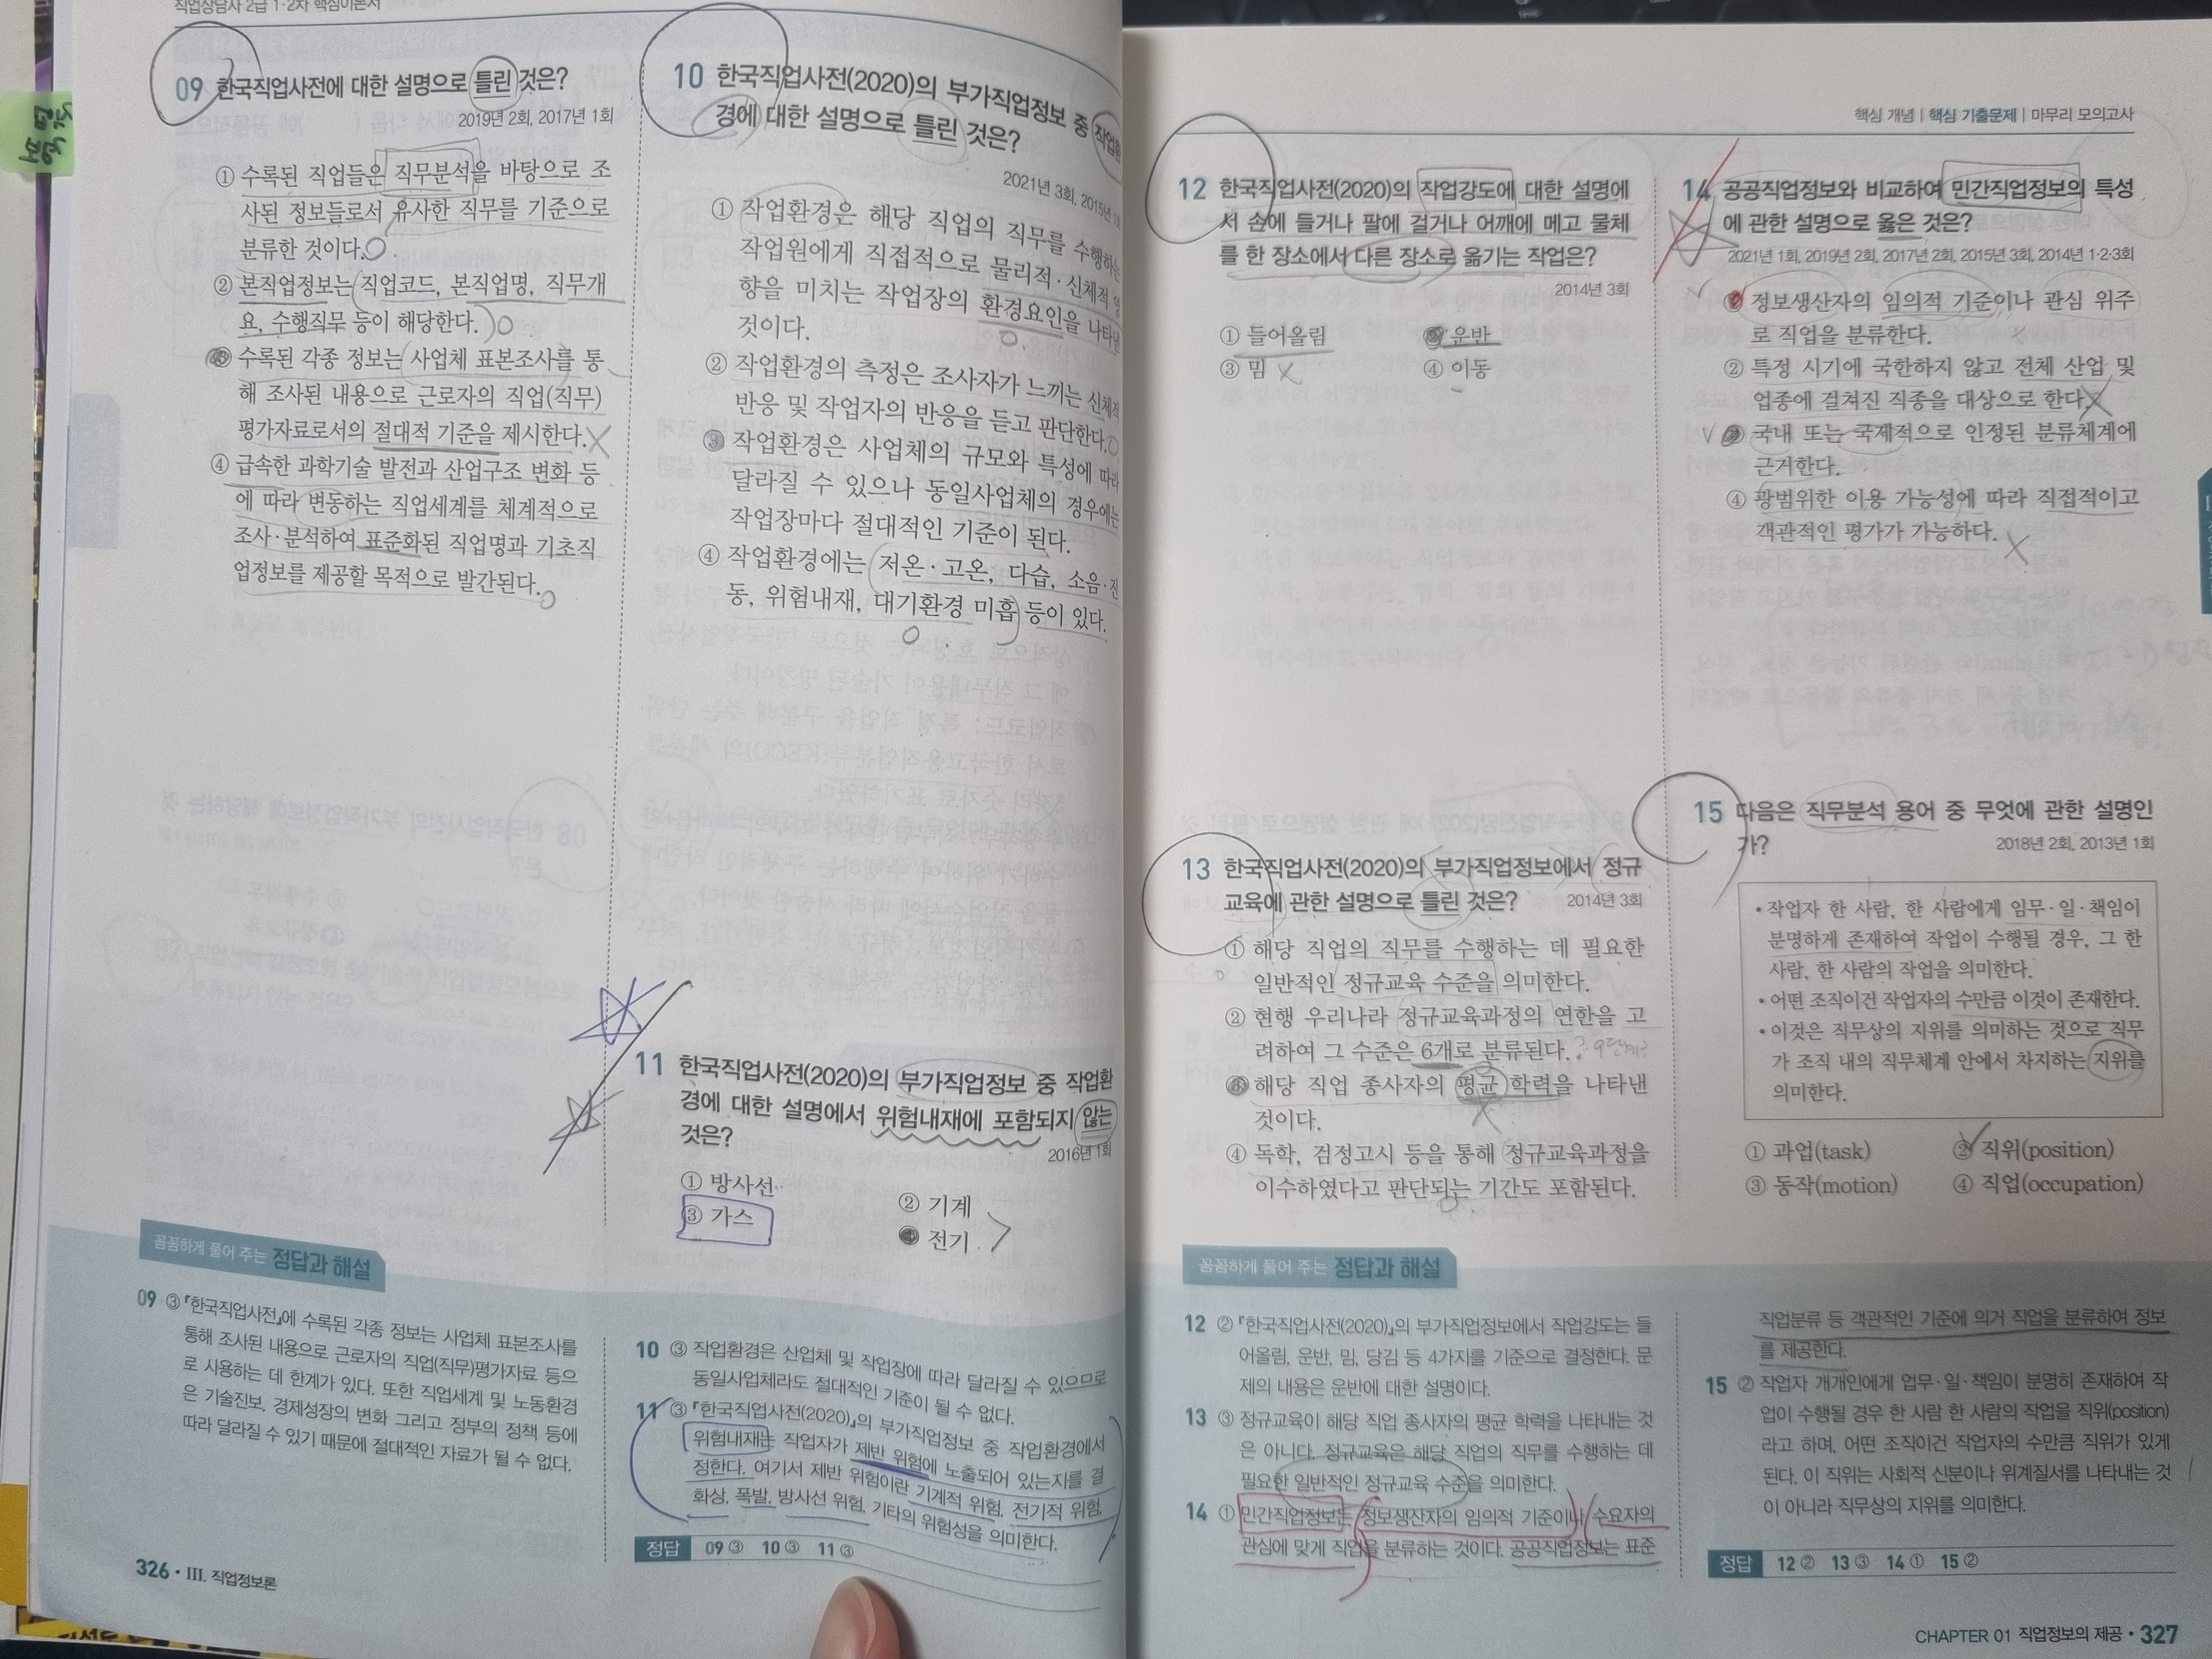 직업상담사 2급 1·2차 핵심이론서
09 한국직업사전에 대한 설명으로 틀린 것은?
2019년 2회, 2017년 1회
① 수록된 직업들은 직무분석을 바탕으로 조
사된 정보들로서 유사한 직무를 기준으로
분류한 것이다.
② 본직업정보는 직업코드, 본직업명, 직무개
요, 수행직무 등이 해당한다.
③ 수록된 각종 정보는 사업체 표본조사를 통
해 조사된 내용으로 근로자의 직업(직무)
평가자료로서의 절대적 기준을 제시한다.
④ 급속한 과학기술 발전과 산업구조 변화 등
에 따라 변동하는 직업세계를 체계적으로
조사·분석하여 표준화된 직업명과 기초직
업정보를 제공할 목적으로 발간된다.
10 한국직업사전(2020)의 부가직업정보 중 작업환
경에 대한 설명으로 틀린 것은?
2021년 3회, 2015년
① 작업환경은 해당 직업의 직무를 수행하는
작업원에게 직접적으로 물리적·신체적 영
향을 미치는 작업장의 환경요인을 나타낸
것이다.
② 작업환경의 측정은 조사자가 느끼는 신체적
반응 및 작업자의 반응을 듣고 판단한다.
③ 작업환경은 사업체의 규모와 특성에 따라
달라질 수 있으나 동일사업체의 경우에는
작업장마다 절대적인 기준이 된다.
④ 작업환경에는 저온·고온, 다습, 소음·진
동, 위험내재, 대기환경 미흡 등이 있다.
11 한국직업사전(2020)의 부가직업정보 중 작업환
경에 대한 설명에서 위험내재에 포함되지 않는
것은?
2016년 1회
① 방사선
② 기계
③ 가스
④ 전기
꼼꼼하게 풀어 주는 정답과 해설
09 ③ 『한국직업사전』에 수록된 각종 정보는 사업체 표본조사를
통해 조사된 내용으로 근로자의 직업(직무)평가자료 등으
로 사용하는 데 한계가 있다. 또한 직업세계 및 노동환경
은 기술진보, 경제성장의 변화 그리고 정부의 정책 등에
따라 달라질 수 있기 때문에 절대적인 자료가 될 수 없다.
10 ③ 작업환경은 산업체 및 작업장에 따라 달라질 수 있으므로
동일사업체라도 절대적인 기준이 될 수 없다.
11 ③ 『한국직업사전(2020)』의 부가직업정보 중 작업환경에서
위험내재는 작업자가 제반 위험에 노출되어 있는지를 결
정한다. 여기서 제반 위험이란 기계적 위험, 전기적 위험,
화상, 폭발, 방사선 위험, 기타의 위험성을 의미한다.
정답 09 ③ 10 ③ 11 ③
326 · III. 직업정보론
핵심 개념 | 핵심 기출문제 | 마무리 모의고사
12 한국직업사전(2020)의 작업강도에 대한 설명에
서 손에 들거나 팔에 걸거나 어깨에 메고 물체
를 한 장소에서 다른 장소로 옮기는 작업은?
2014년 3회
① 들어올림
② 운반
③ 밈
④ 이동
13 한국직업사전(2020)의 부가직업정보에서 정규
교육에 관한 설명으로 틀린 것은?
2014년 3회
① 해당 직업의 직무를 수행하는 데 필요한
일반적인 정규교육 수준을 의미한다.
② 현행 우리나라 정규교육과정의 연한을 고
려하여 그 수준은 6개로 분류된다.
③ 해당 직업 종사자의 평균 학력을 나타낸
것이다.
④ 독학, 검정고시 등을 통해 정규교육과정을
이수하였다고 판단되는 기간도 포함된다.
14 공공직업정보와 비교하여 민간직업정보의 특성
에 관한 설명으로 옳은 것은?
2021년 1회, 2019년 2회, 2017년 2회, 2015년 3회, 2014년 1·2·3회
① 정보생산자의 임의적 기준이나 관심 위주
로 직업을 분류한다.
② 특정 시기에 국한하지 않고 전체 산업 및
업종에 걸쳐진 직종을 대상으로 한다.
③ 국내 또는 국제적으로 인정된 분류체계에
근거한다.
④ 광범위한 이용 가능성에 따라 직접적이고
객관적인 평가가 가능하다.
15 다음은 직무분석 용어 중 무엇에 관한 설명인
가?
2018년 2회, 2013년 1회
• 작업자 한 사람, 한 사람에게 임무·일·책임이
분명하게 존재하여 작업이 수행될 경우, 그 한
사람, 한 사람의 작업을 의미한다.
• 어떤 조직이건 작업자의 수만큼 이것이 존재한다.
• 이것은 직무상의 지위를 의미하는 것으로 직무
가 조직 내의 직무체계 안에서 차지하는 지위를
의미한다.
① 과업(task)
② 직위(position)
③ 동작(motion)
④ 직업(occupation)
꼼꼼하게 풀어 주는 정답과 해설
12 ② 『한국직업사전(2020)』의 부가직업정보에서 작업강도는 들
어올림, 운반, 밈, 당김 등 4가지를 기준으로 결정한다. 문
제의 내용은 운반에 대한 설명이다.
13 ③ 정규교육이 해당 직업 종사자의 평균 학력을 나타내는 것
은 아니다. 정규교육은 해당 직업의 직무를 수행하는 데
필요한 일반적인 정규교육 수준을 의미한다.
14 ① 민간직업정보는 정보생산자의 임의적 기준이나 수요자의
관심에 맞게 직업을 분류하는 것이다. 공공직업정보는 표준
직업분류 등 객관적인 기준에 의거 직업을 분류하여 정보
를 제공한다.
15 ② 작업자 개개인에게 업무·일·책임이 분명히 존재하여 작
업이 수행될 경우 한 사람 한 사람의 작업을 직위(position)
라고 하며, 어떤 조직이건 작업자의 수만큼 직위가 있게
된다. 이 직위는 사회적 신분이나 위계질서를 나타내는 것
이 아니라 직무상의 지위를 의미한다.
정답 12 ② 13 ③ 14 ① 15 ②
CHAPTER 01 직업정보의 제공 · 327